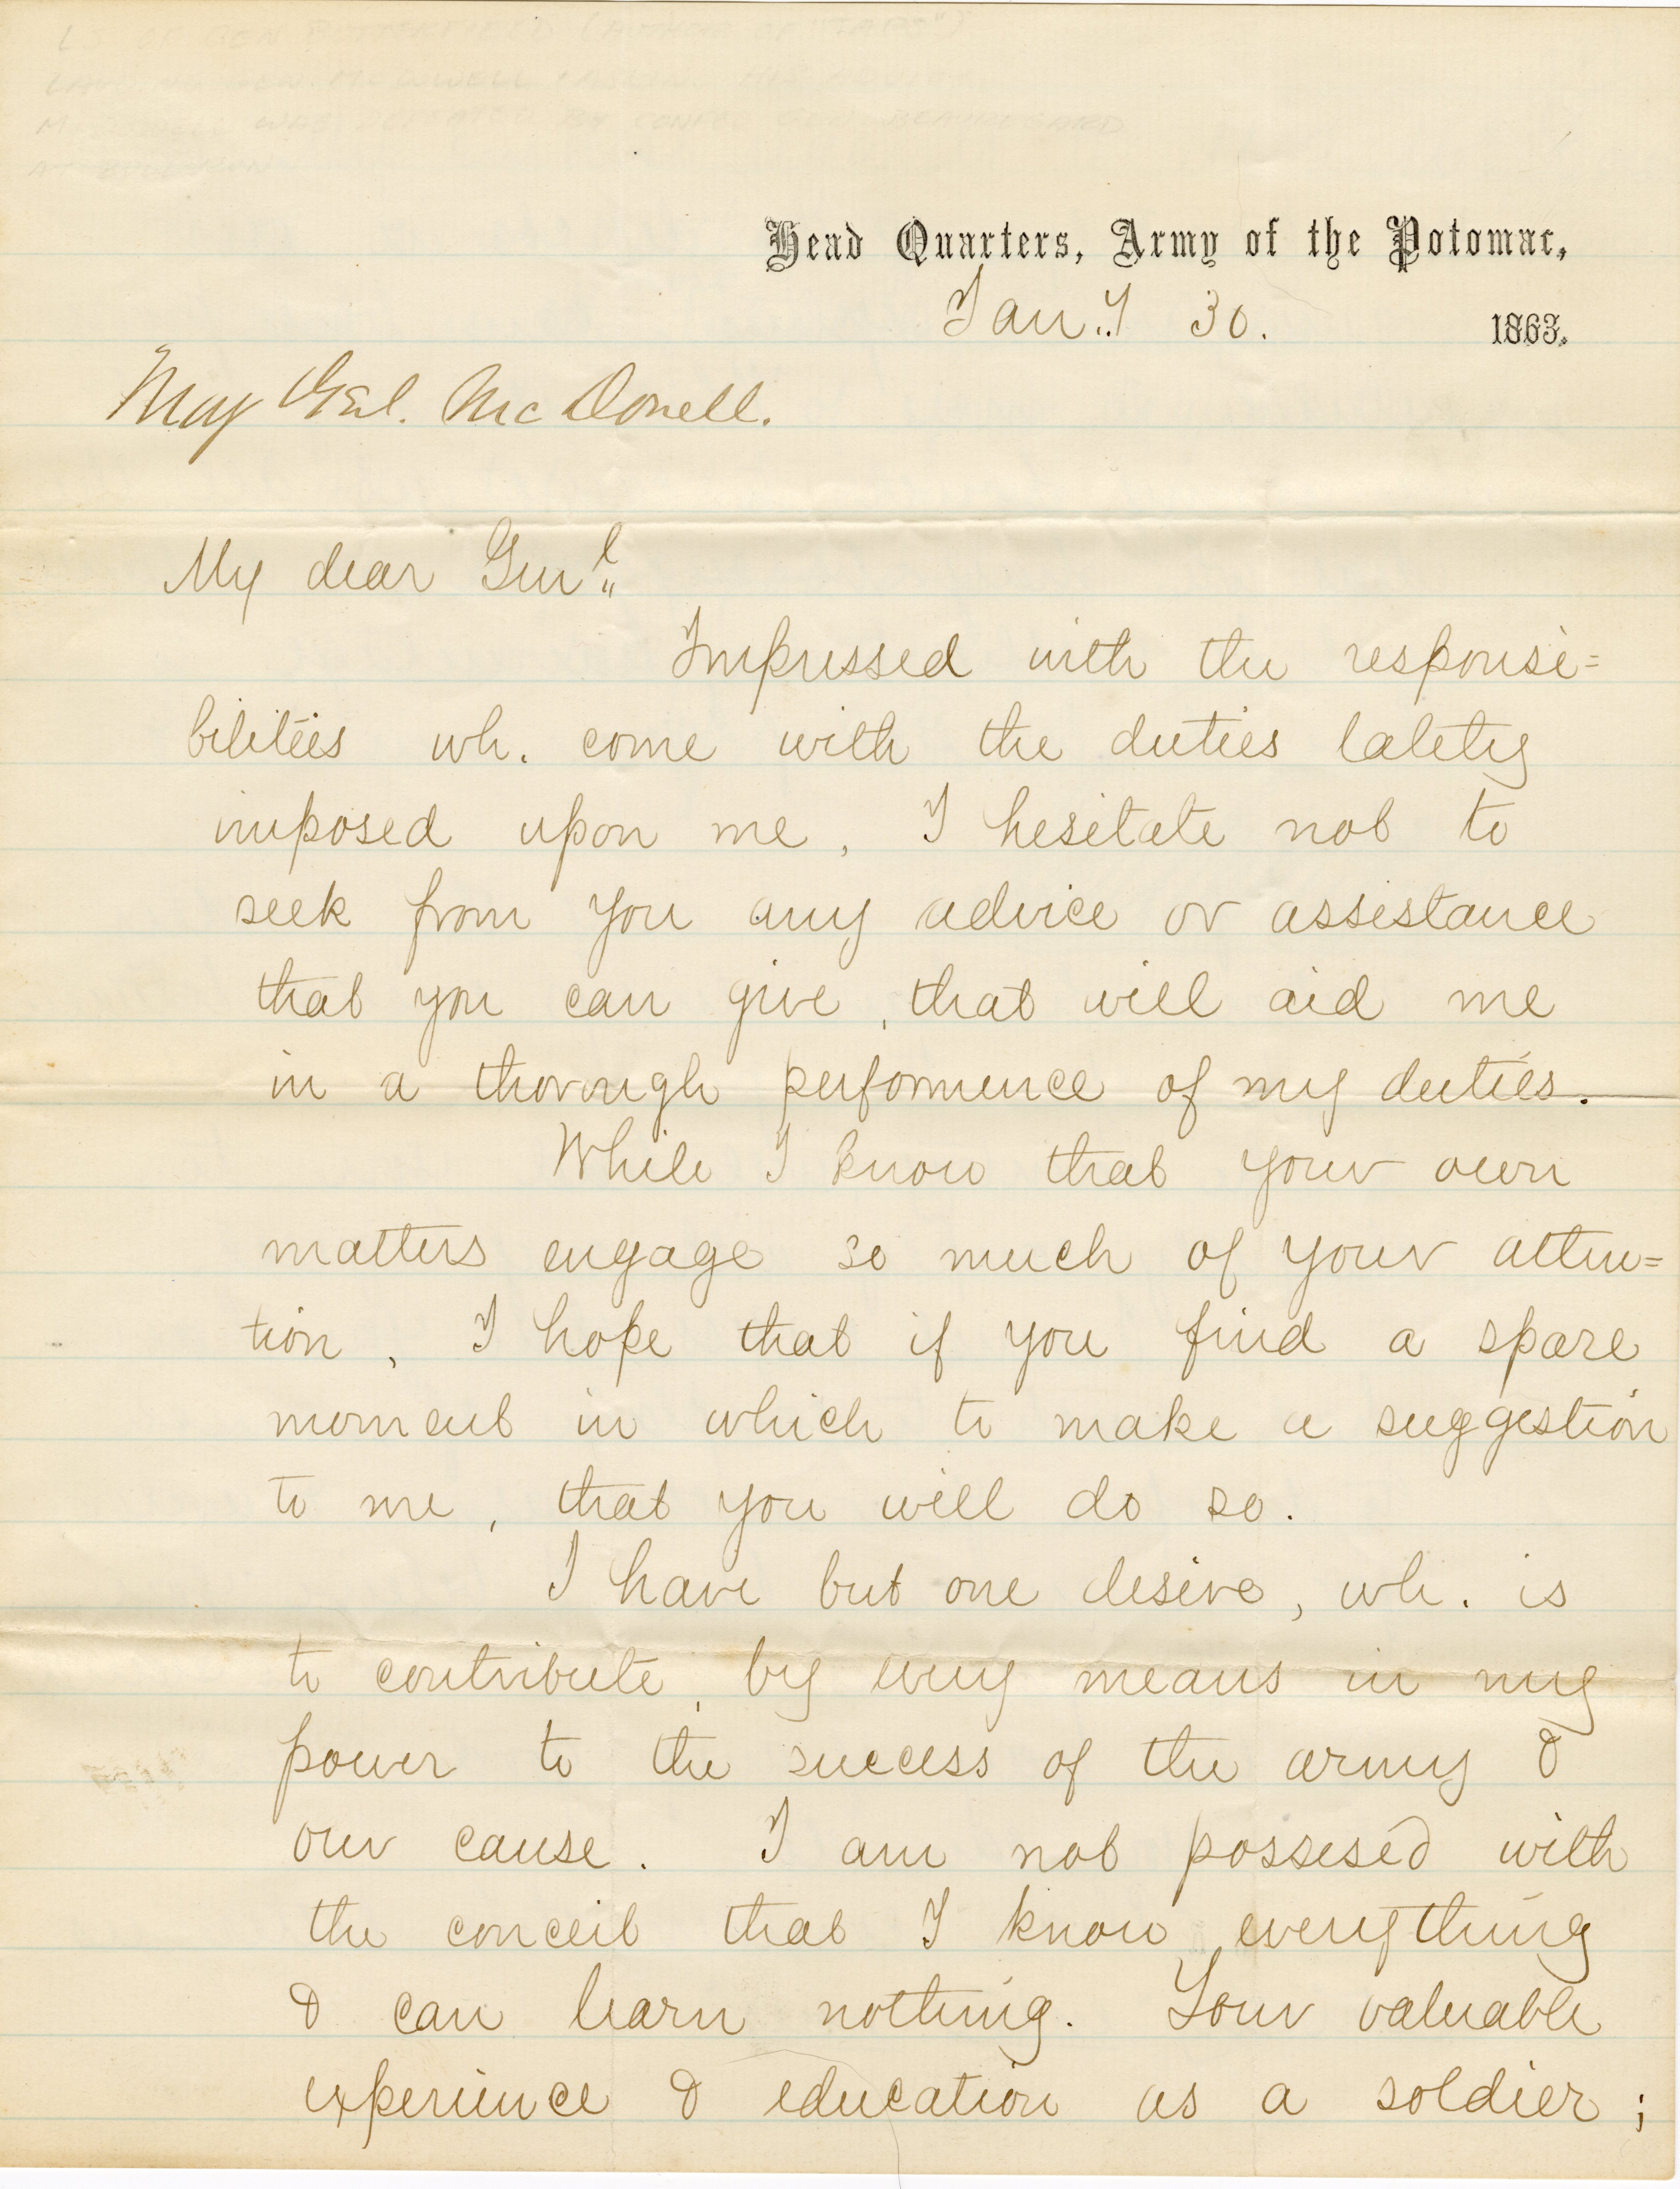 LS OF GEN BUTTERFIELD (AUTHOR OF "TAPS")
GEN. McDOWELL + ASKING HIS ADVICE
WAS DEFEATED BY CONFED GEN. BEAUREGARD
AT BULL RUN
Head Quarters, Army of the Potomac,
Jan.y 30. 1863.
Maj Genl. McDowell.
My dear Genl
Impressed with the responsi=
bilities wh. come with the duties lately
imposed upon me, I hesitate not to
seek from you any advice or assistance
that you can give, that will aid me
in a thorough performence of my duties.
While I know that your own
matters engage so much of your atten=
tion, I hope that if you find a spare
moment in which to make a suggestion
to me, that you will do so.
I have but one desire, wh. is
to contribute, by every means in my
power to the success of the army &
our cause. I am not possesed with
the conceit that I know everything
& can learn nothing. Your valuable
experience & education as a soldier;